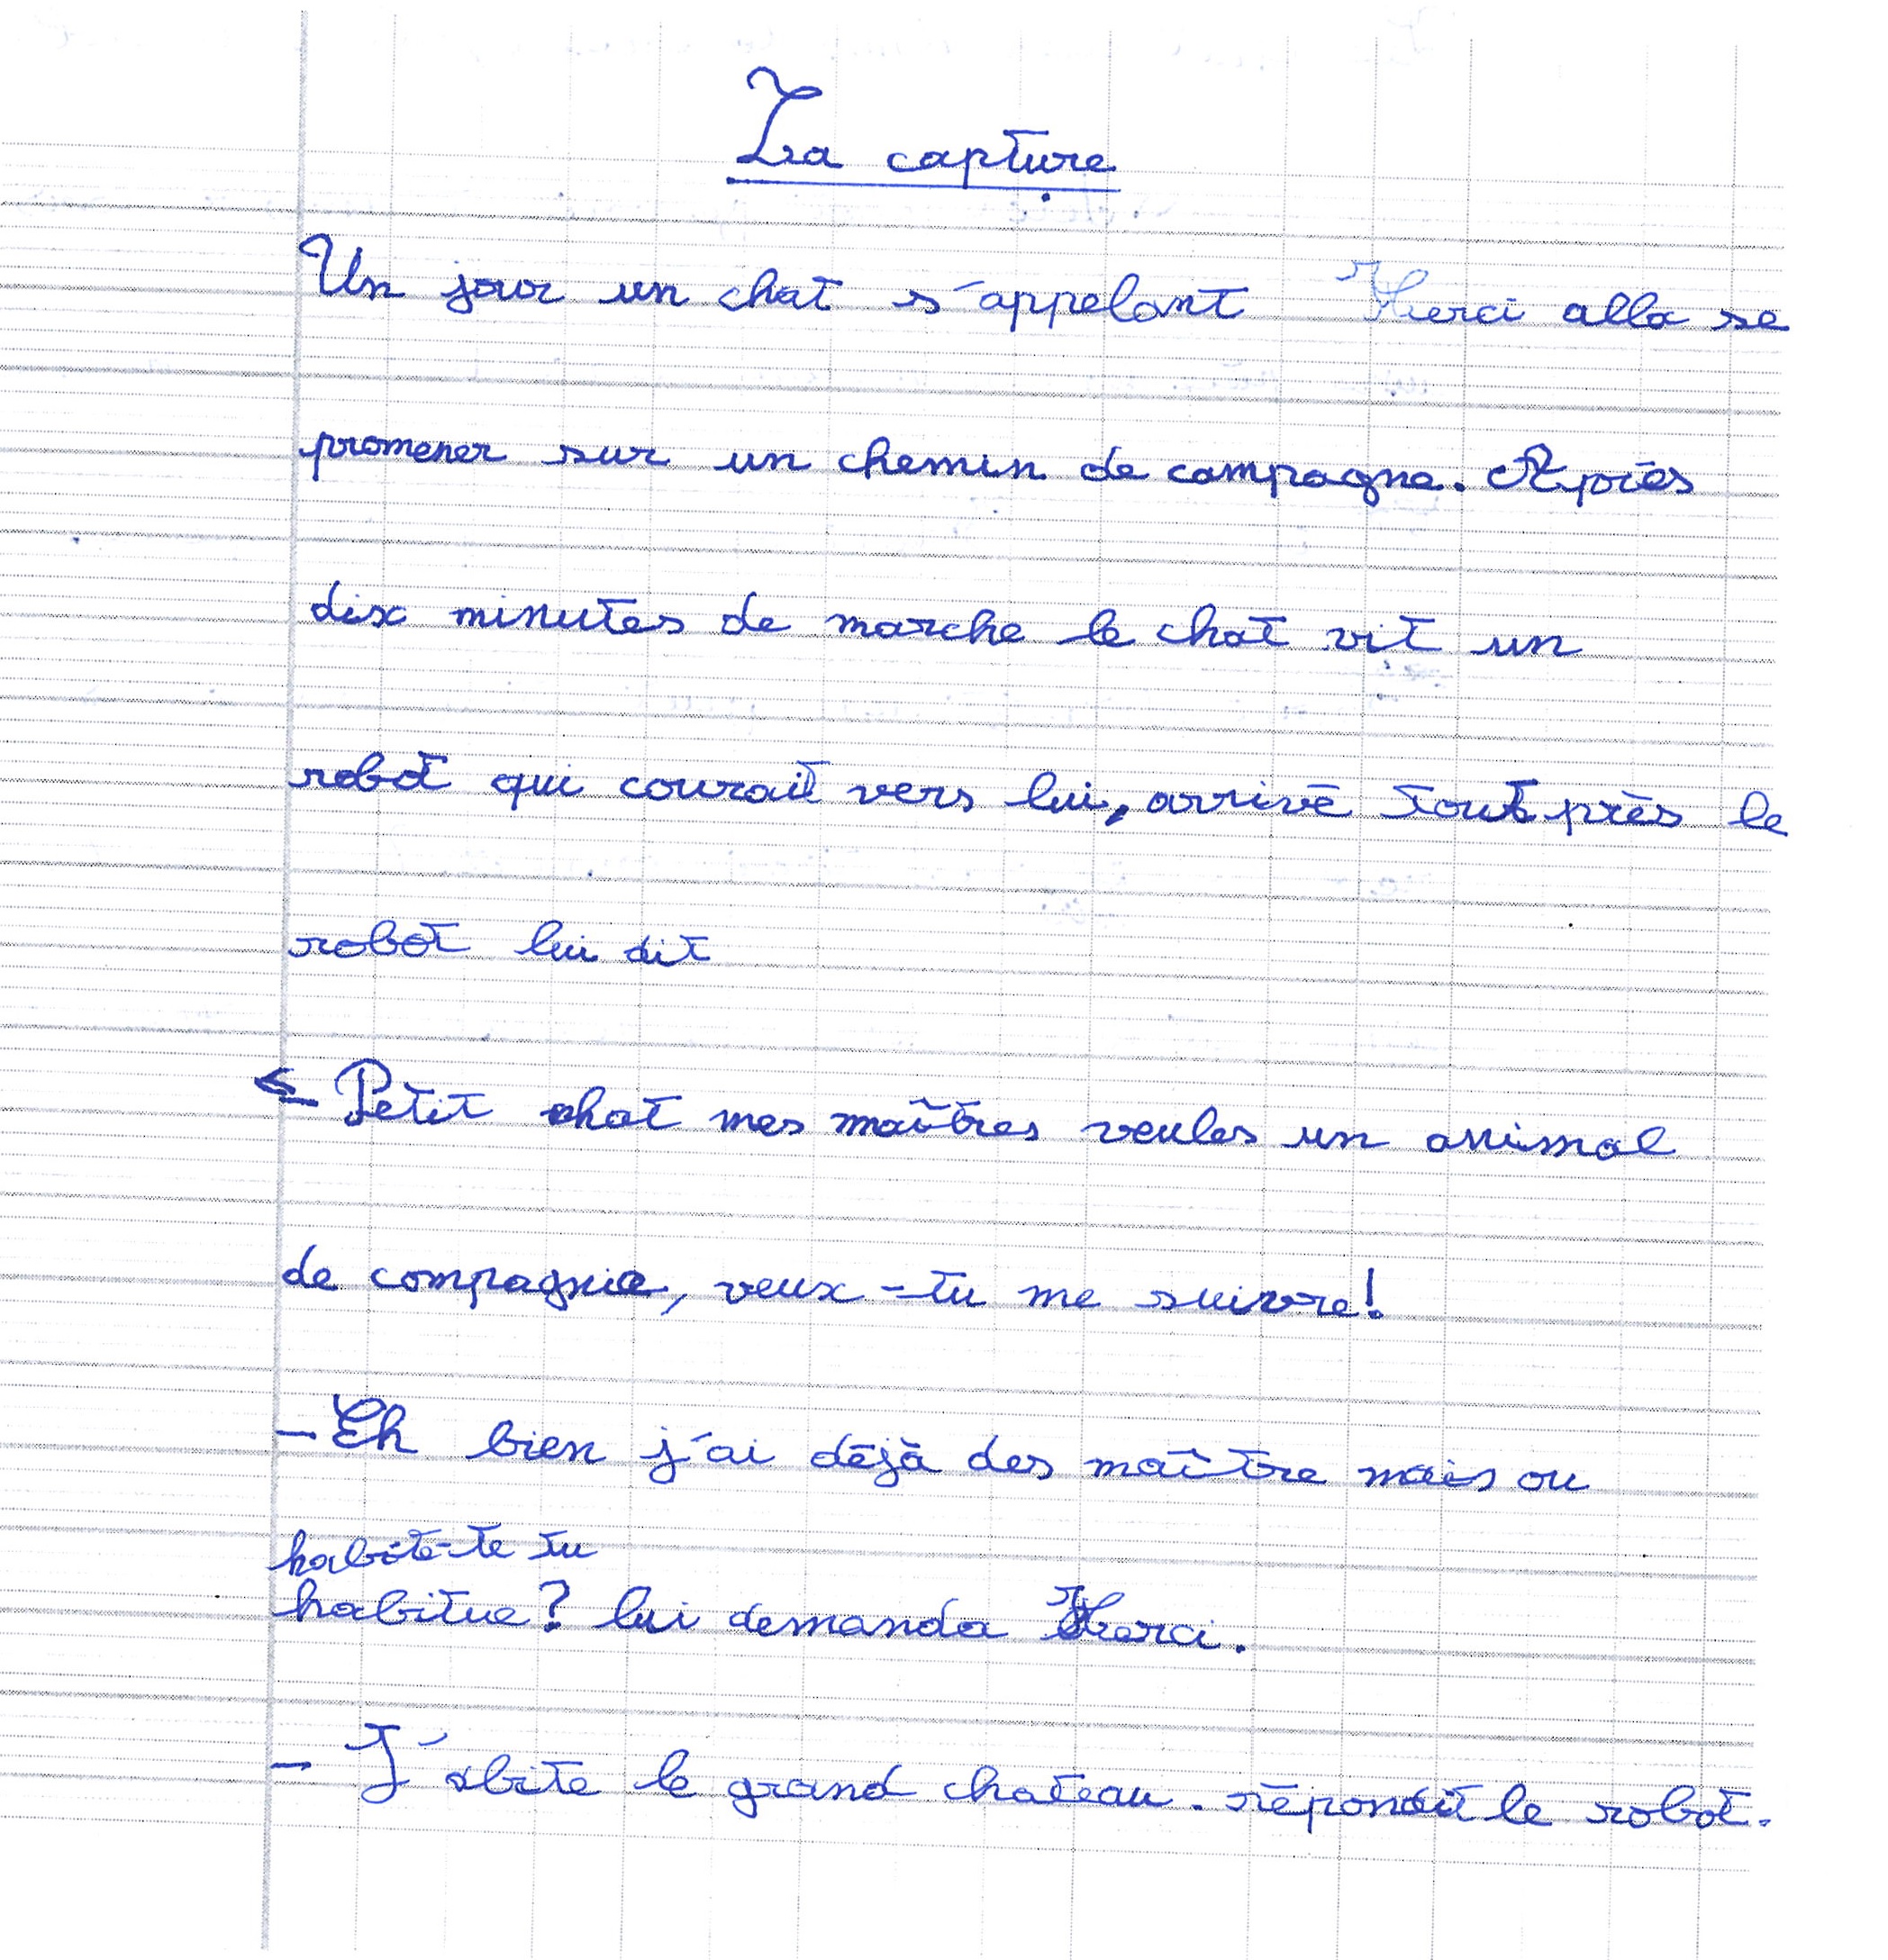 La capture
Un jour un chat s'appelant Herci alla se
promener sur un chemin de campagne. Après
dix minutes de marche le chat vit un
robot qui courait vers lui, arrivé tout près le
robot lui dit
- Petit chat mes maîtres veules un animal
de compagnie, veux-tu me suivre!
- Eh bien j'ai déjà des maître mais ou
habite-te tu
habitue? lui demanda Herci.
- J'abite le grand chateau. répondit le robot.